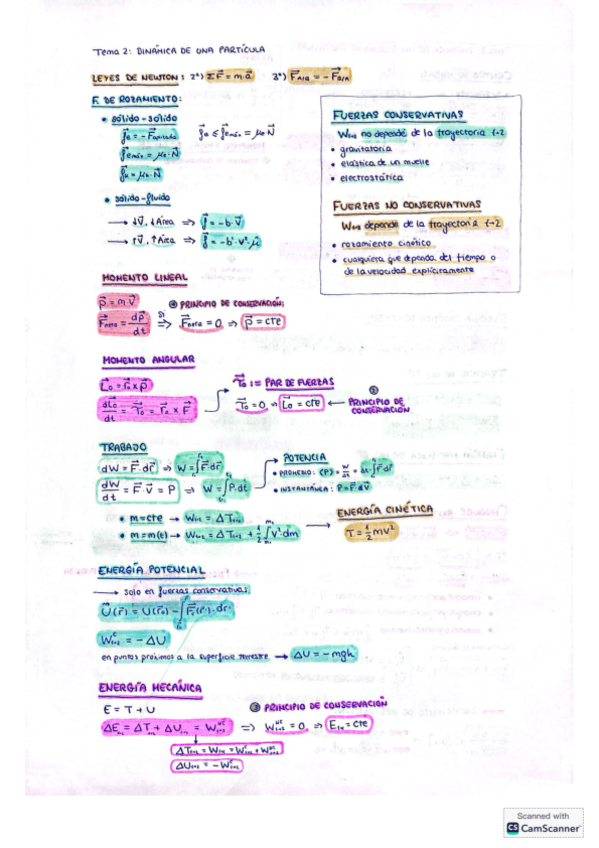 Tema 2: DINÁMICA DE UNA PARTÍCULA
LEYES DE NEWTON: 2ª) ΣF⃗ = m·a⃗ 3ª) F⃗A/B = - F⃗B/A
F. DE ROZAMIENTO:
• sólido-sólido
f⃗e = - F⃗aplicada f⃗e ≤ f⃗e máx = μe·N⃗
f⃗e máx = μe·N⃗
f⃗k = μk·N⃗
• sólido-fluido
→ ↓v⃗, ↓Área ⇒ f⃗ = -b·v⃗
→ ↑v⃗, ↑Área ⇒ f⃗ = -b'·v²·μ⃗
FUERZAS CONSERVATIVAS
W1→2 no depende de la trayectoria 1→2
• gravitatoria
• elástica de un muelle
• electrostática
FUERZAS NO CONSERVATIVAS
W1→2 depende de la trayectoria 1→2
• rozamiento cinético
• cualquiera que dependa del tiempo o
de la velocidad explícitamente
MOMENTO LINEAL
p⃗ = m·v⃗ ① PRINCIPIO DE CONSERVACIÓN:
F⃗neta = dp⃗/dt Si ⇒ F⃗neta = 0 ⇒ p⃗ = cte
MOMENTO ANGULAR
L⃗o = r⃗o x p⃗ τ⃗o := PAR DE FUERZAS
dL⃗o/dt = τ⃗o = r⃗o x F⃗ τ⃗o = 0 ⇒ L⃗o = cte ← ② PRINCIPIO DE
CONSERVACIÓN
TRABAJO
dW = F⃗·dr⃗ ⇒ W = ∫F⃗·dr⃗
dW/dt = F⃗·v⃗ = P ⇒ W = ∫P·dt
POTENCIA
• PROMEDIO: ⟨P⟩ = W/Δt = 1/Δt·∫F⃗·dr⃗
• INSTANTÁNEA: P = F⃗·v⃗
• m=cte → W1→2 = ΔT1→2
• m=m(t) → W1→2 = ΔT1→2 + 1/2 ∫v²·dm
ENERGÍA CINÉTICA
T = 1/2 mv²
ENERGÍA POTENCIAL
→ solo en fuerzas conservativas
U(r⃗) = U(r⃗o) - ∫F⃗(r⃗)·dr⃗
W1→2ᶜ = - ΔU
en puntos próximos a la superficie terrestre → ΔU = - mgh
ENERGÍA MECÁNICA
E = T + U ③ PRINCIPIO DE CONSERVACIÓN
ΔE1→2 = ΔT1→2 + ΔU1→2 = W1→2ᴺᶜ ⇒ W1→2ᴺᶜ = 0 ⇒ = cte
ΔT1→2 = W1→2 = W1→2ᶜ + W1→2ᴺᶜ
ΔU1→2 = - W1→2ᶜ
Scanned with
CS CamScanner